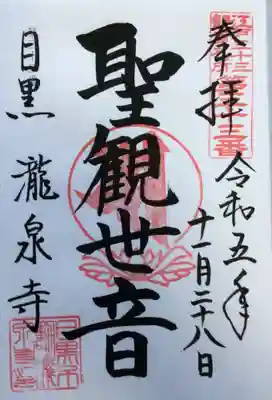 奉拝
令和五年
十一月二十八日
聖観世音
目黒 瀧泉寺